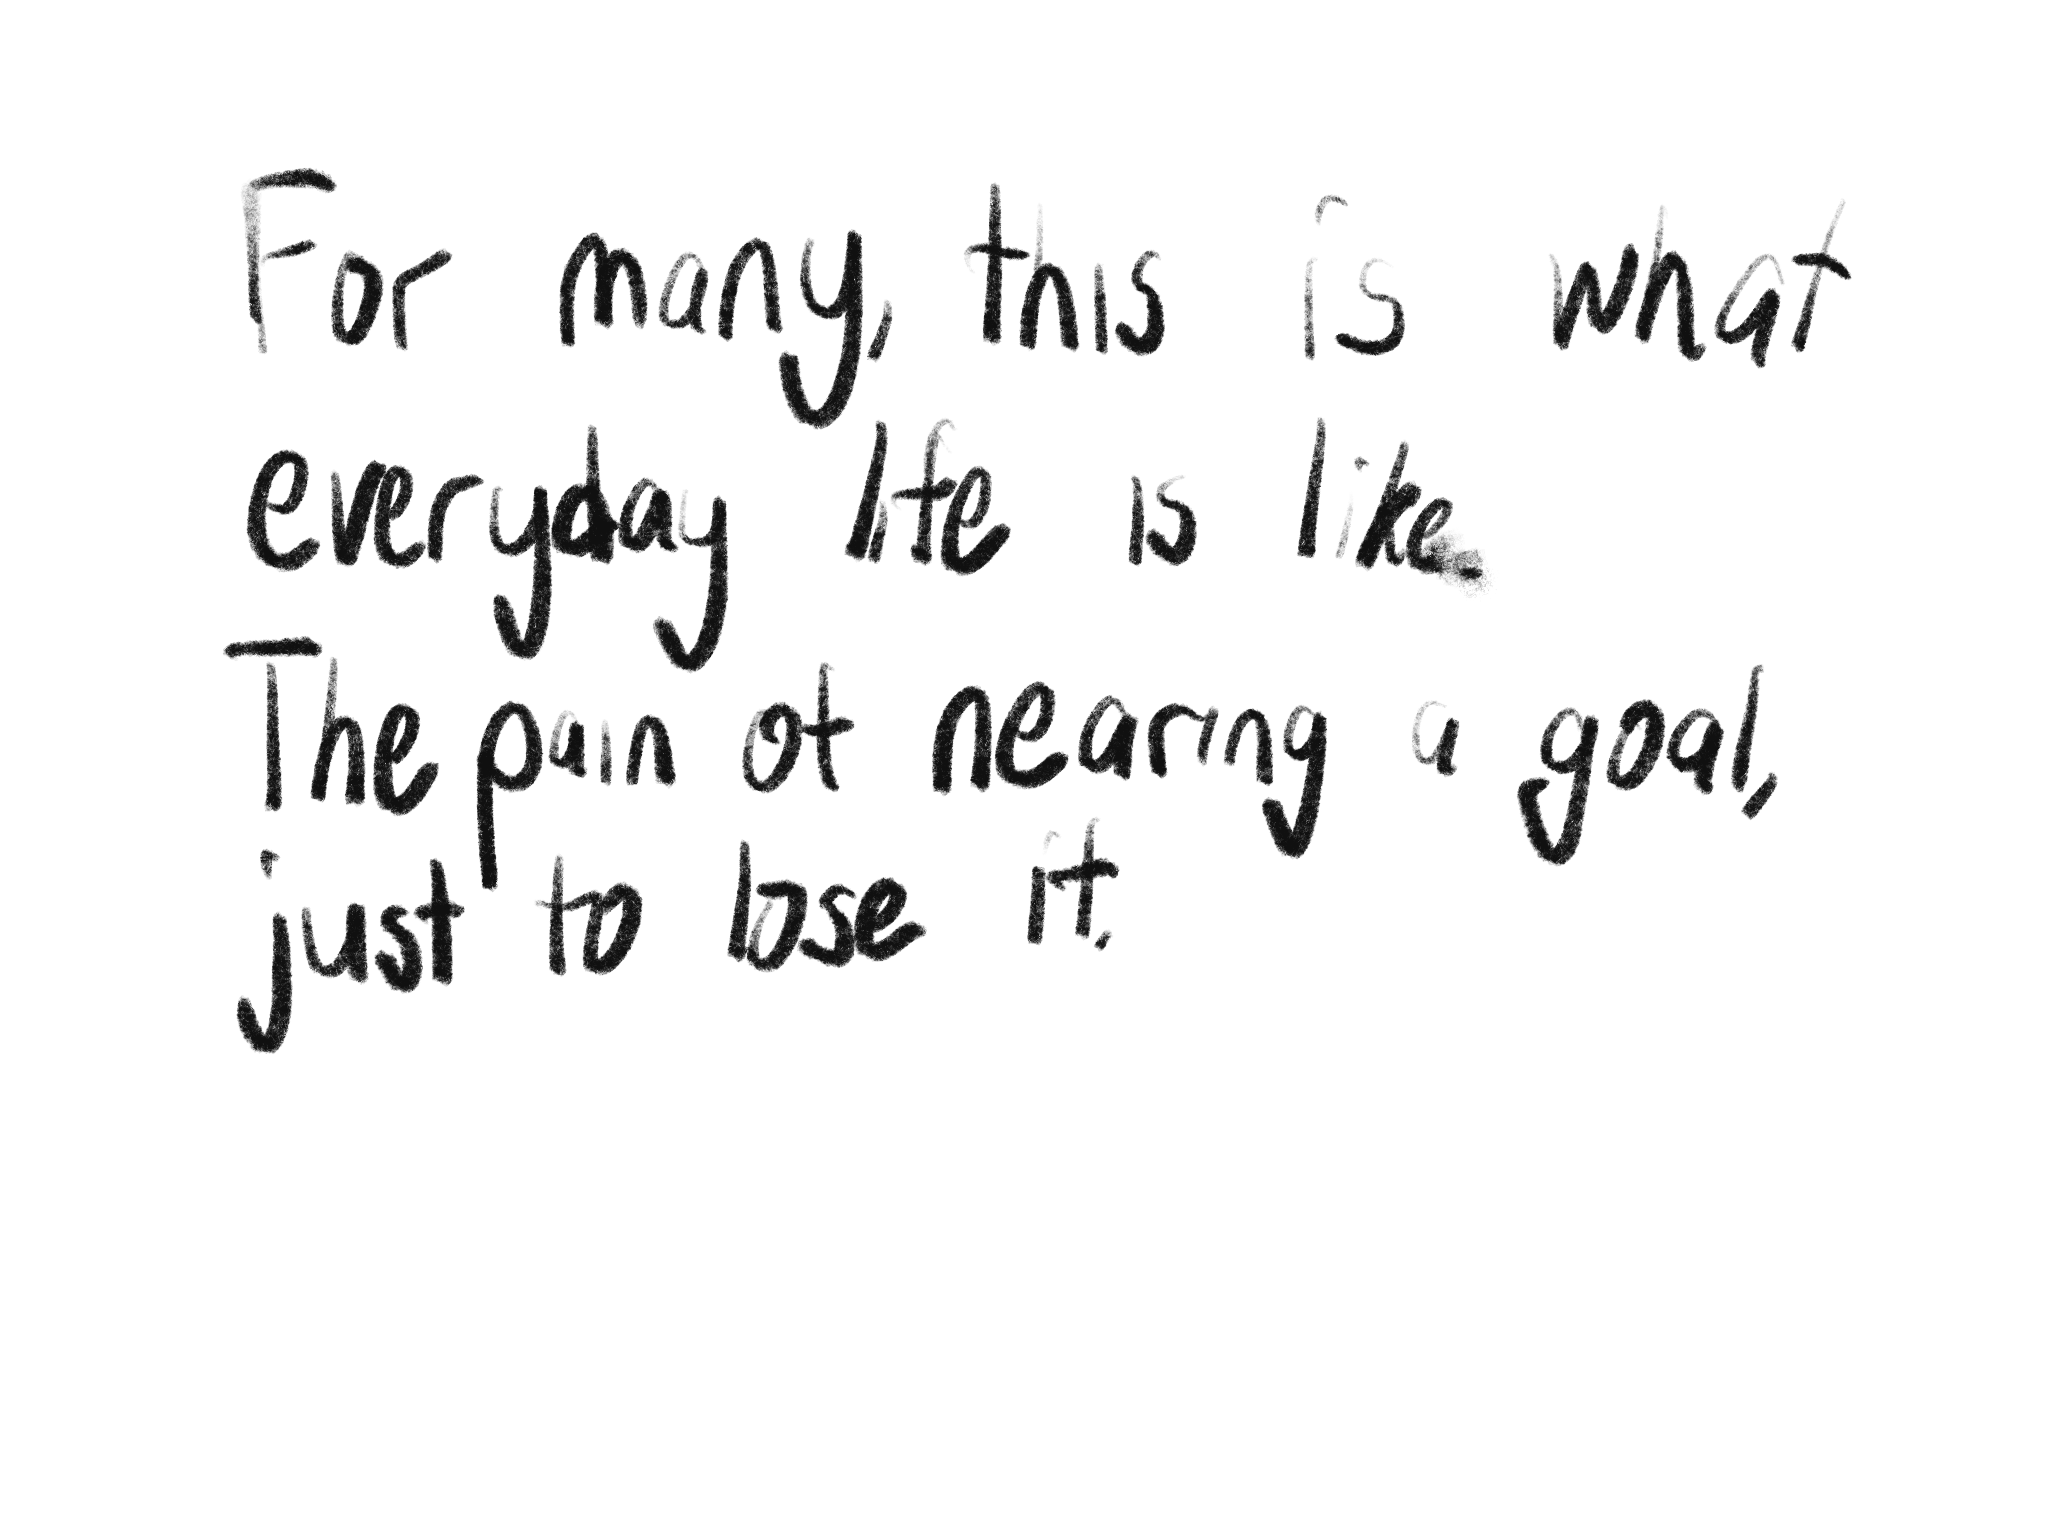 For many, this is what
everyday life is like.
The pain of nearing a goal,
just to lose it.